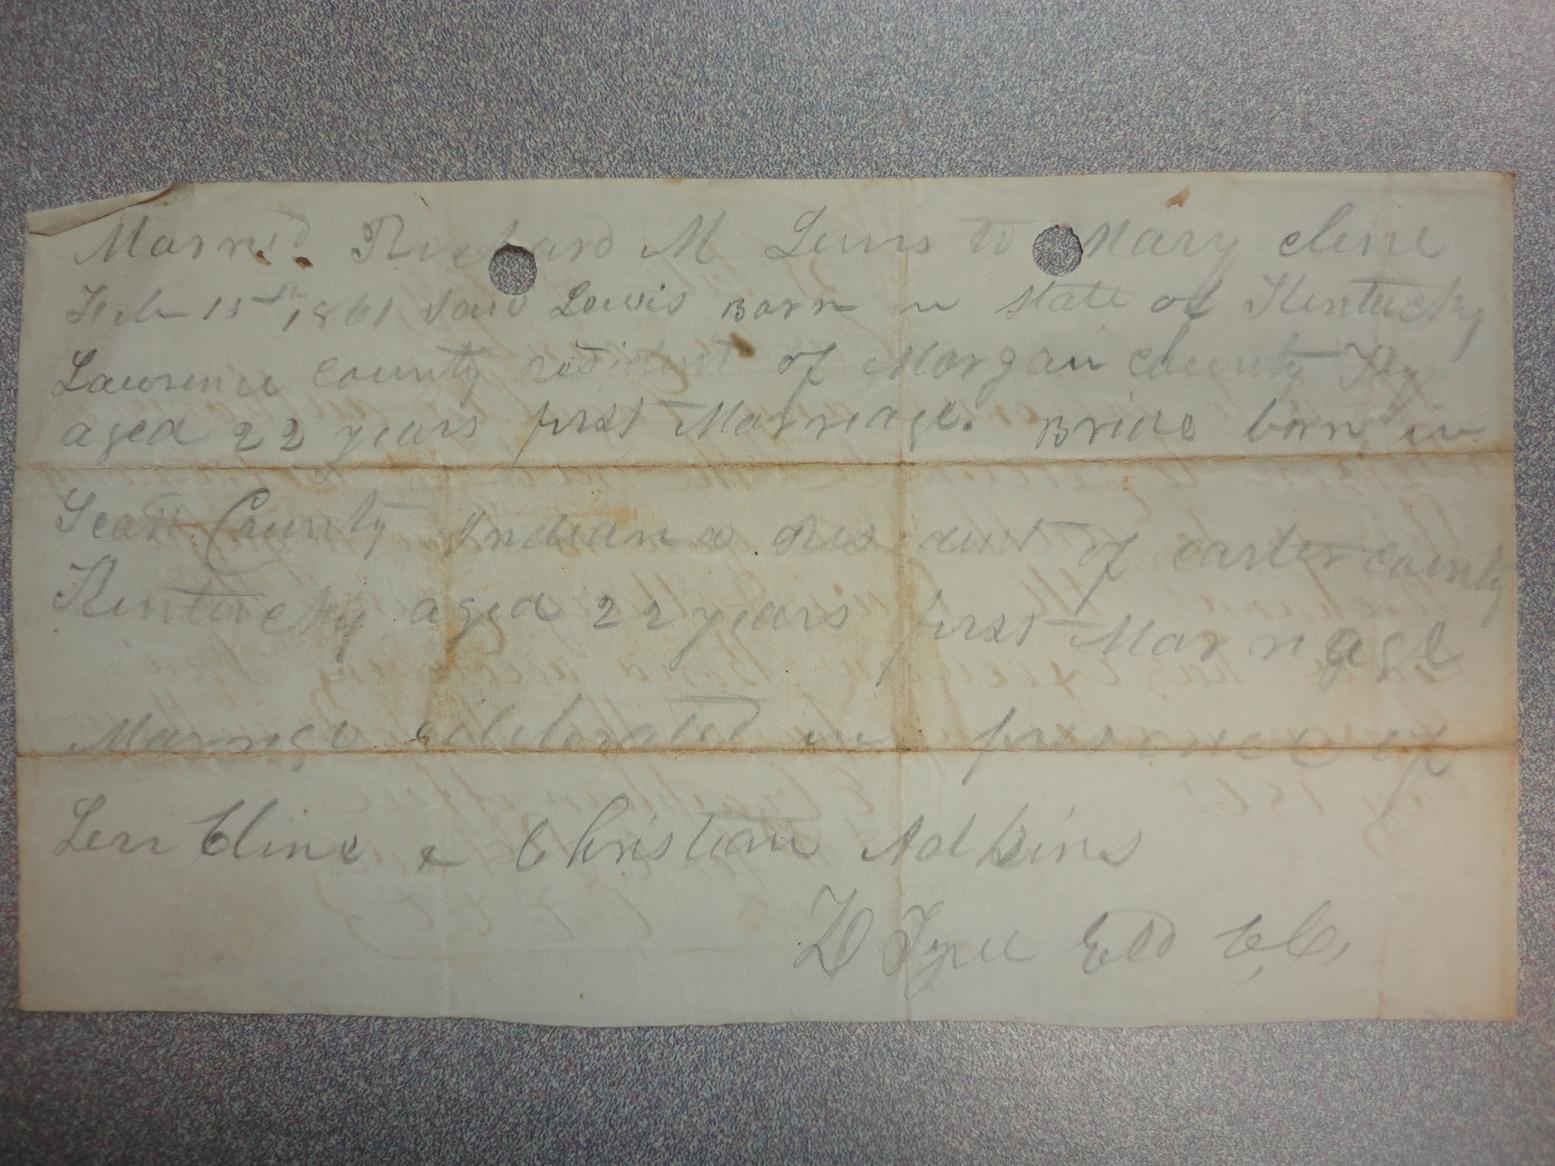 Married Richard M Lewis to Mary cline
Feb 15th 1861 Said Lewis Born in state of Kentucky
Lawrence county resident of Morgan county Ky
aged 22 years first Marriage. Bride born in
Scott County Indiana resident of carter county
Kentucky aged 22 years first Marriage
Marrige celebrated in presence of
Cline & Christian Adkins
D Eld C, C,